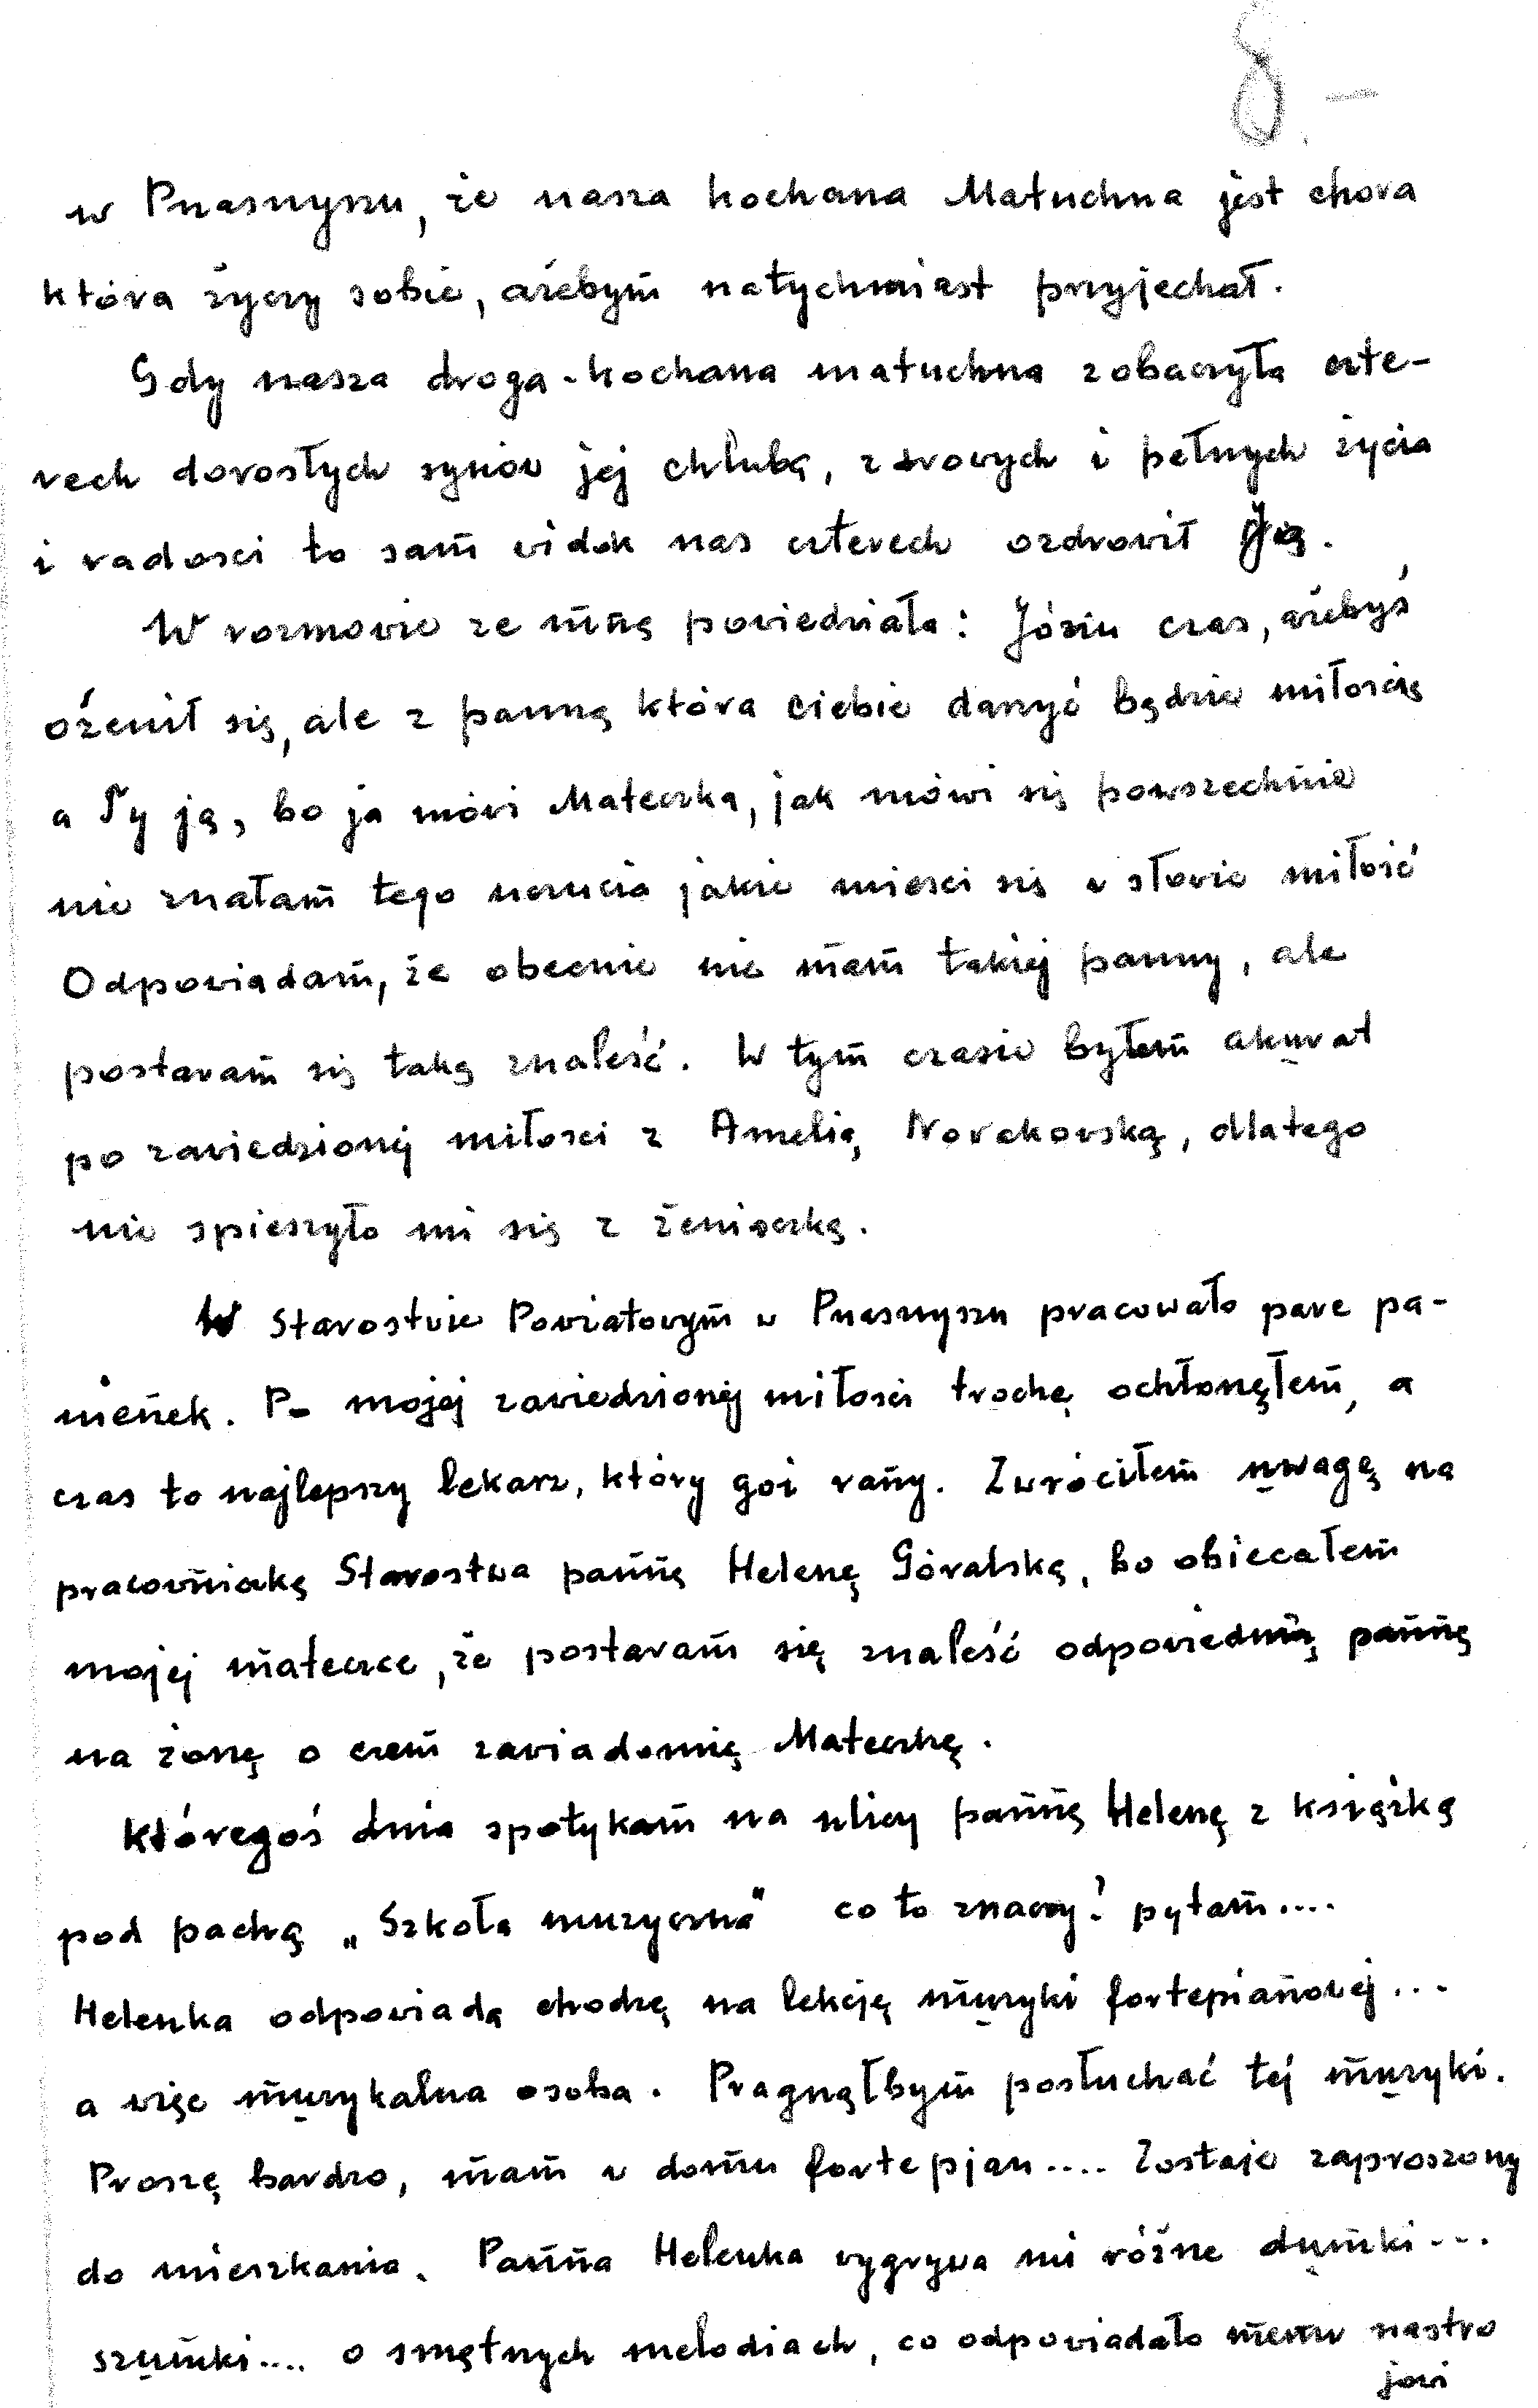 8.-
w Przasnyszu, że nasza kochana Matuchna jest chora
która życzy sobie, ażebym natychmiast przyjechał.
Gdy nasza droga-kochana matuchna zobaczyła czte-
rech dorosłych synów jej chlubą, zdrowych i pełnych życia
i radości to sam widok nas czterech ozdrowił Ją.
W rozmowie ze mną powiedziała: Józiu czas, ażebyś
ożenił się, ale z panną która ciebie darzyć będzie miłością
a Ty ją, bo ja mówi Mateczka, jak mówi się powszechnie
nie znałam tego uczucia jakie mieści się w słowie miłość
Odpowiadam, że obecnie nie mam takiej panny, ale
postaram się taką znaleść. W tym czasie byłem akurat
po zawiedzionej miłości z Amelią Nowakowską, dlatego
nie spieszyło mi się z żeniaczką.
W Starostwie Powiatowym w Przasnyszu pracowało pare pa-
nienek. Po mojej zawiedzionej miłości trochę ochłonąłem, a
czas to najlepszy lekarz, który goi rany. Zwróciłem uwagę na
pracowniczkę Starostwa pannę Helenę Góralską, bo obiecałem
mojej mateczce, że postaram się znaleść odpowiednią pannę
na żonę o czem zawiadomię Mateczkę.
któregoś dnia spotykam na ulicy pannę Helenę z książką
pod pachą „Szkoła muzyczna" co to znaczy? pytam....
Helenka odpowiada chodzę na lekcję muzyki fortepianowej...
a więc muzykalna osoba. Pragnąłbym posłuchać tej muzyki.
Proszę bardzo, mam w domu fortepjan.... Zostaje zaproszony
do mieszkania. Panna Helenka wygrywa mi różne dumki...
szumki.... o smętnych melodiach, co odpowiadało memu nastro
jowi